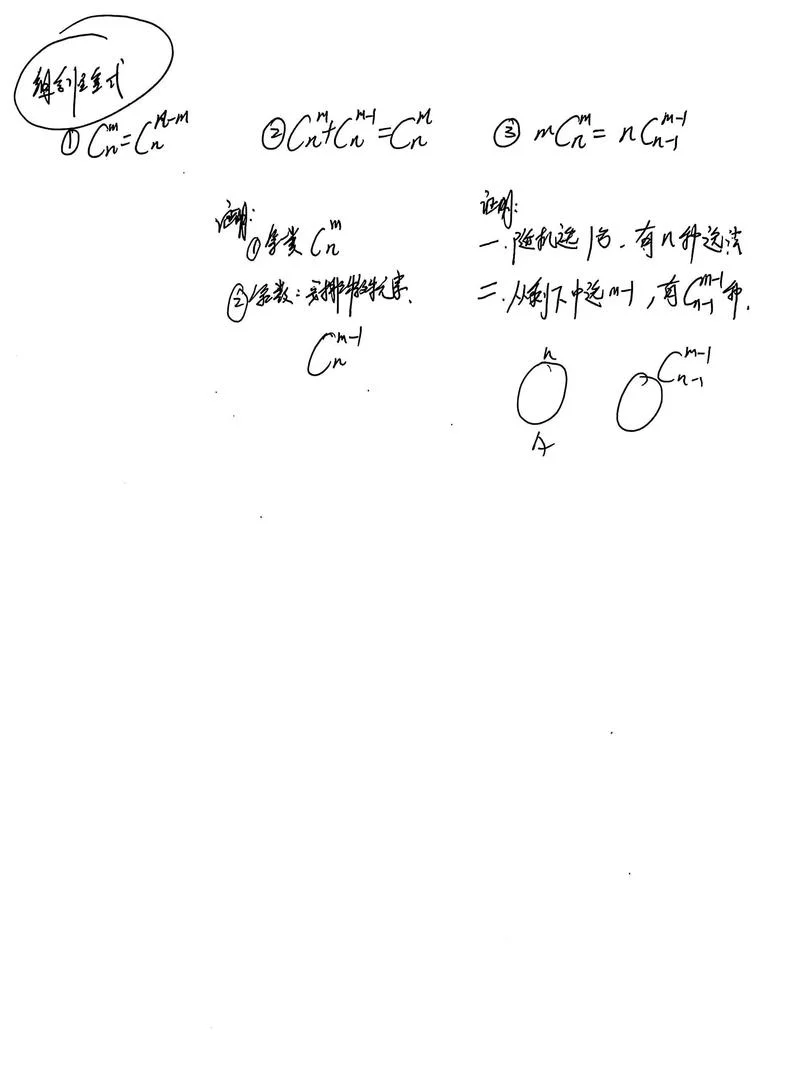 ① Cₙᵐ = Cₙⁿ⁻ᵐ
② Cₙᵐ + Cₙᵐ⁻¹ = Cₙᵐ
③ mCₙᵐ = nCₙ₋₁ᵐ⁻¹
证明:
① Cₙᵐ
②
Cₙᵐ⁻¹
证明:
一. 随机选1名, 有n种选法
二. 从剩下中选m-1, 有Cₙ₋₁ᵐ⁻¹种.
n
Cₙ₋₁ᵐ⁻¹
A